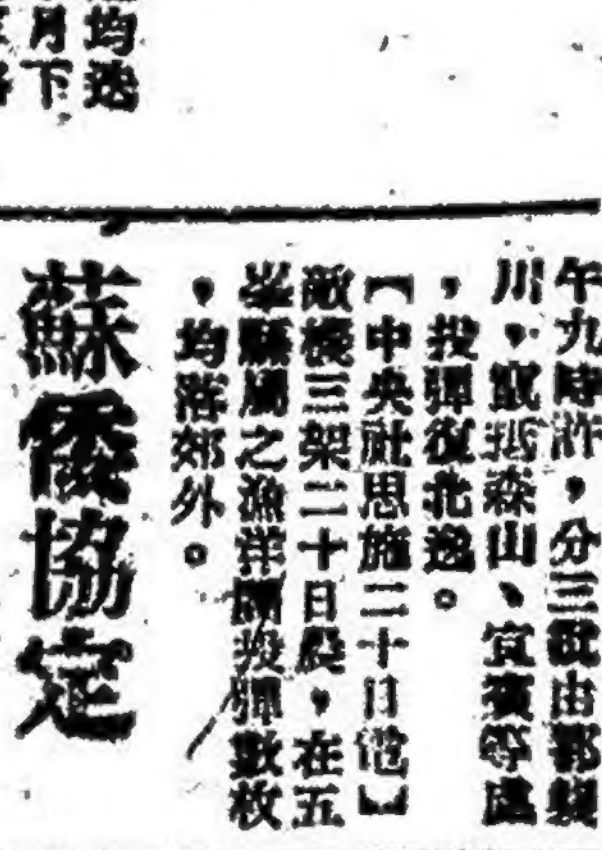 午九時許，分三批由鄂襲
川，竄抵森山、宜賓等處
，投彈復北逸。
【中央社恩施二十日電】
敵機三架二十日晨，在五
峯縣屬之漁洋關投彈數枚
，均落郊外。
蘇倭協定
均逸
月下